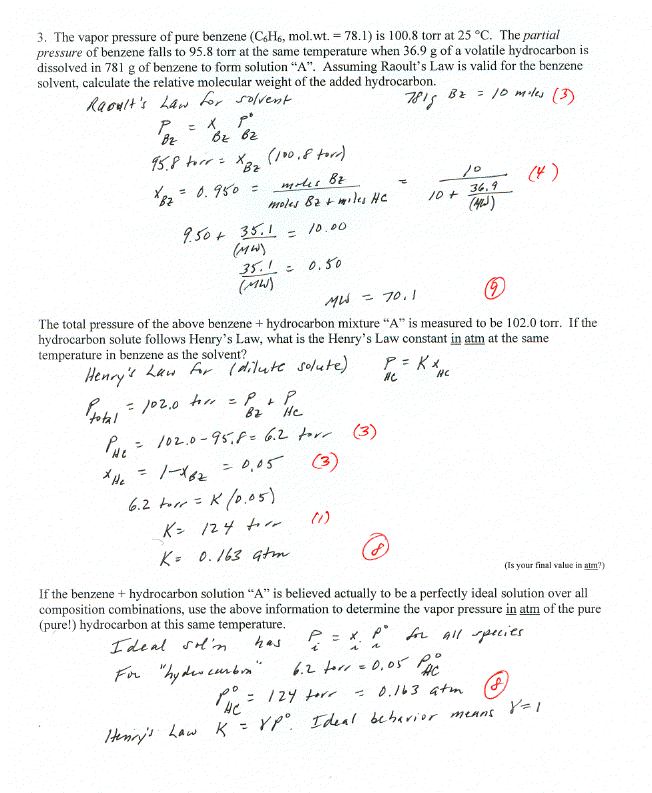 3. The vapor pressure of pure benzene (C₆H₆, mol.wt. = 78.1) is 100.8 torr at 25 °C. The partial
pressure of benzene falls to 95.8 torr at the same temperature when 36.9 g of a volatile hydrocarbon is
dissolved in 781 g of benzene to form solution “A”. Assuming Raoult’s Law is valid for the benzene
solvent, calculate the relative molecular weight of the added hydrocarbon.
Raoult's Law for solvent 781g Bz = 10 moles (3)
P_Bz = X_Bz P°_Bz
95.8 torr = X_Bz (100.8 torr)
X_Bz = 0.950 = moles Bz / moles Bz + moles HC = 10 / 10 + 36.9/(MW) (4)
9.50 + 35.1/(MW) = 10.00
35.1/(MW) = 0.50
MW = 70.1 (9)
The total pressure of the above benzene + hydrocarbon mixture “A” is measured to be 102.0 torr. If the
hydrocarbon solute follows Henry’s Law, what is the Henry’s Law constant in atm at the same
temperature in benzene as the solvent?
Henry's Law for (dilute solute) P_HC = K X_HC
P_total = 102.0 torr = P_Bz + P_HC
P_HC = 102.0 - 95.8 = 6.2 torr (3)
X_HC = 1 - X_Bz = 0.05 (3)
6.2 torr = K (0.05)
K = 124 torr (1)
K = 0.163 atm (8)
(Is your final value in atm?)
If the benzene + hydrocarbon solution “A” is believed actually to be a perfectly ideal solution over all
composition combinations, use the above information to determine the vapor pressure in atm of the pure
(pure!) hydrocarbon at this same temperature.
Ideal sol'n has P_i = X_i P°_i for all species
For "hydrocarbon" 6.2 torr = 0.05 P°_HC
P°_HC = 124 torr = 0.163 atm (8)
Henry's Law K = γP°. Ideal behavior means γ=1